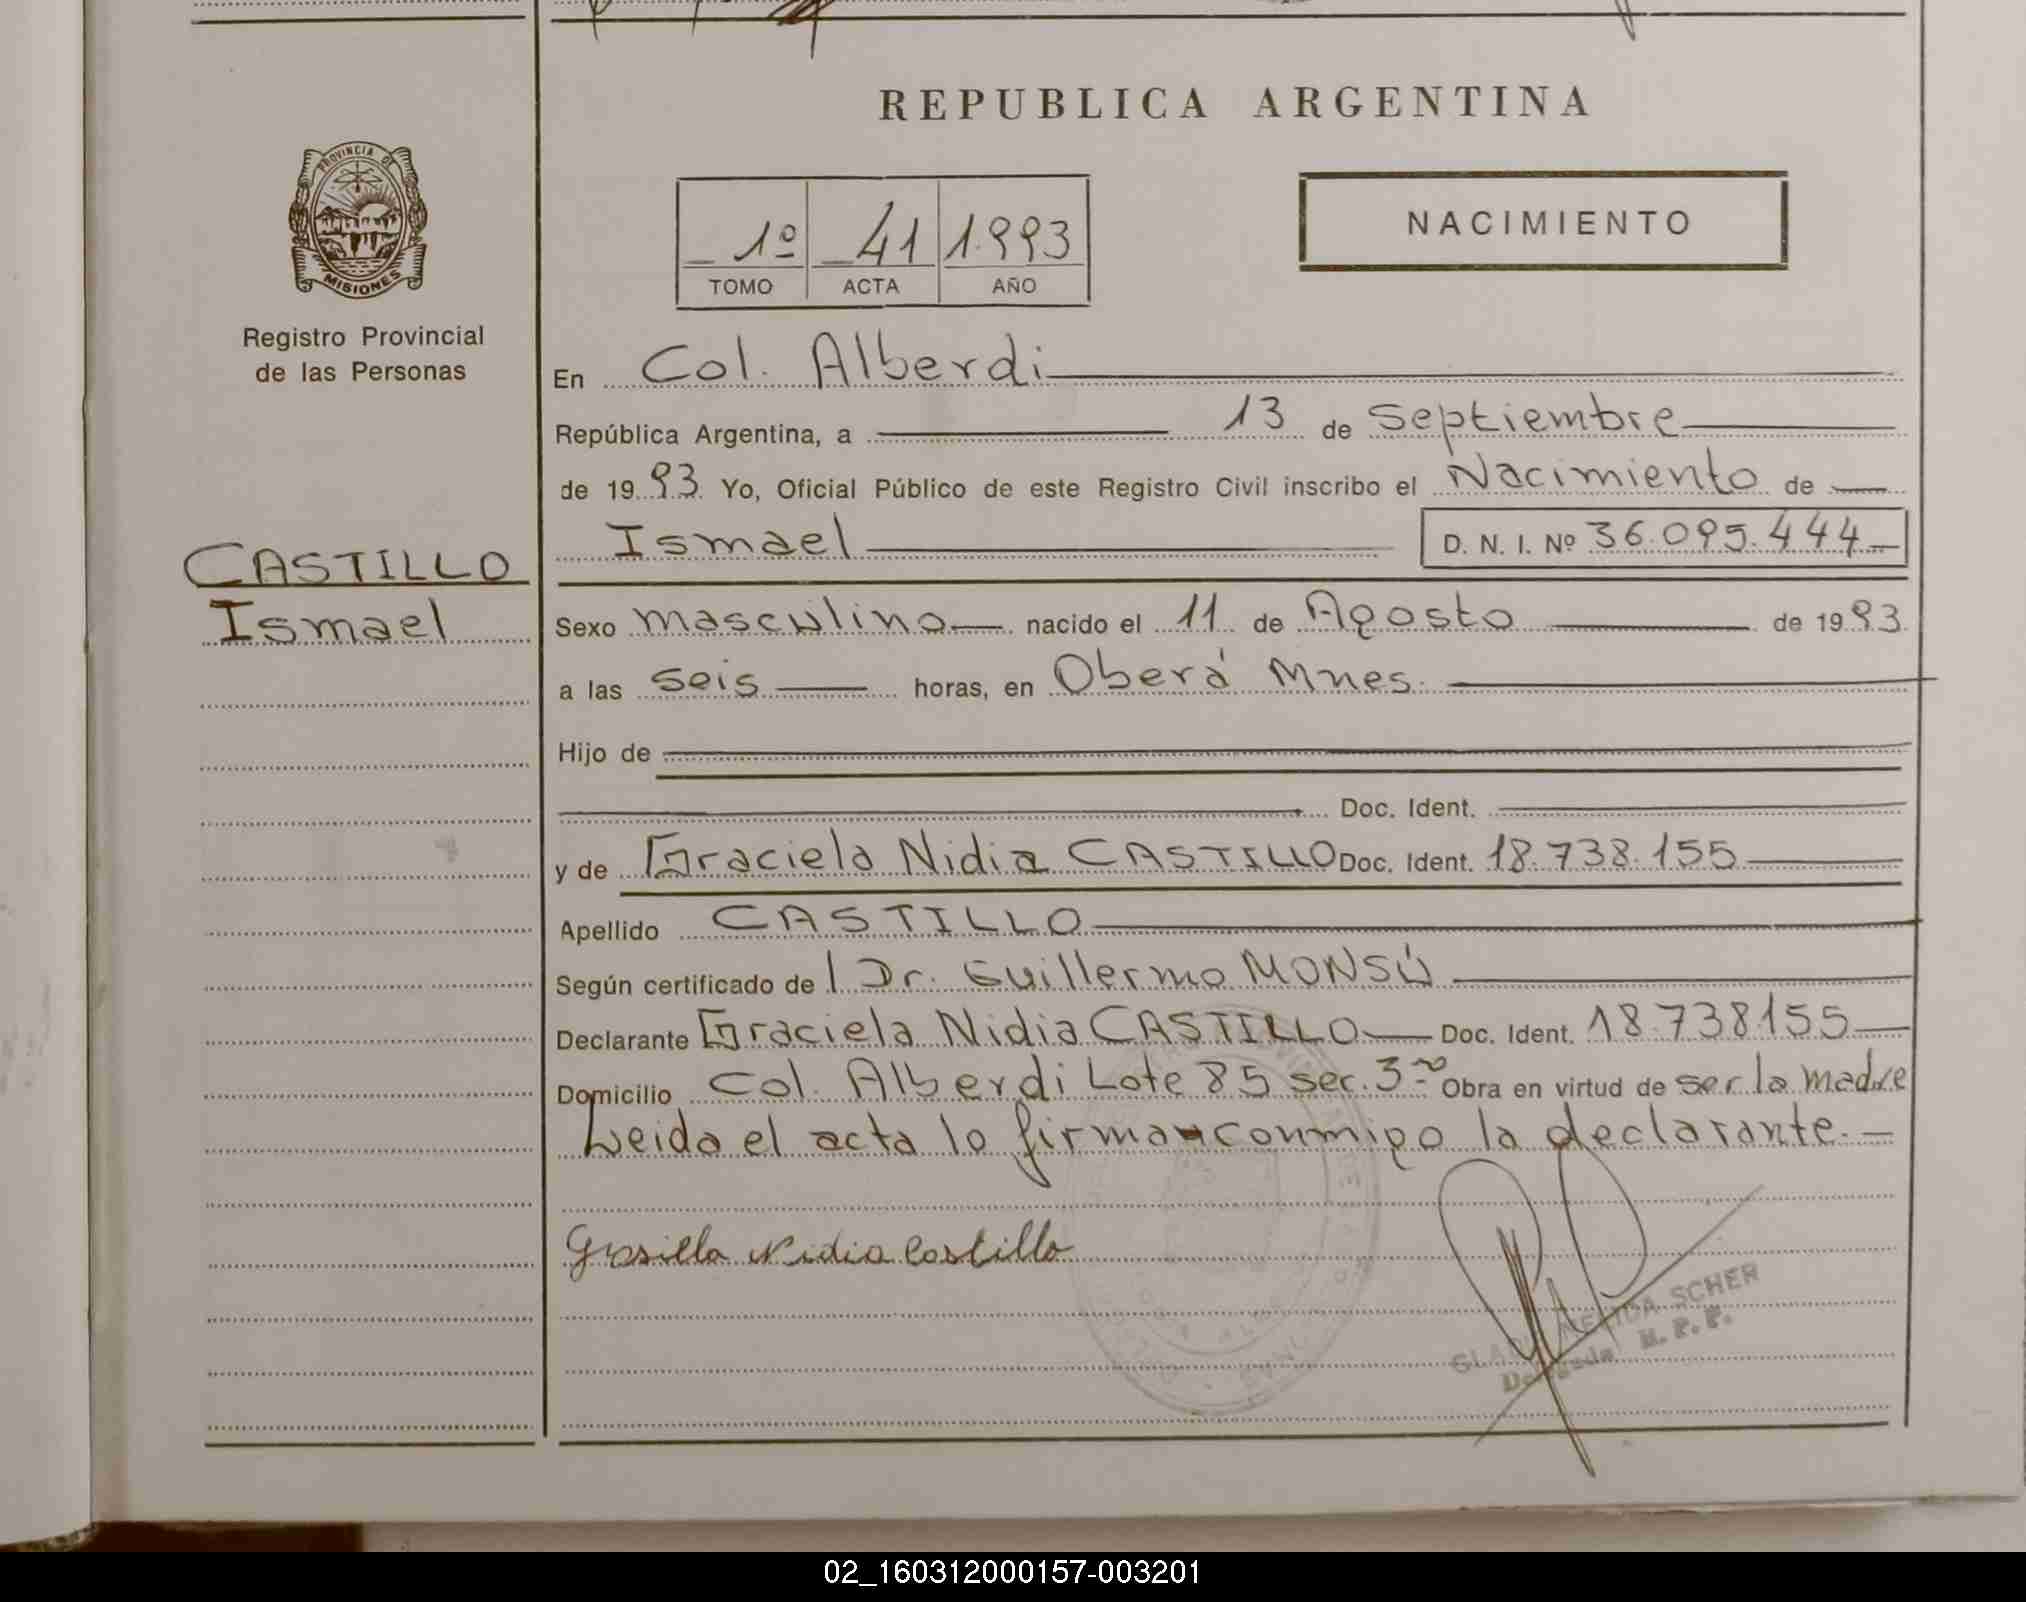 REPUBLICA ARGENTINA
PROVINCIA DE
MISIONES
Registro Provincial
de las Personas
1º 41 1993
TOMO ACTA AÑO
NACIMIENTO
En Col. Alberdi
República Argentina, a 13 de Septiembre
de 1993. Yo, Oficial Público de este Registro Civil inscribo el Nacimiento de
Ismael D. N. I. Nº 36.095.444
CASTILLO
Ismael
Sexo masculino nacido el 11 de Agosto de 1993.
a las seis horas, en Oberá Mnes.
Hijo de
Doc. Ident.
y de Graciela Nidia CASTILLO Doc. Ident. 18.738.155
Apellido CASTILLO
Según certificado de Dr. Guillermo MONSÚ
Declarante Graciela Nidia CASTILLO Doc. Ident. 18.738155
Domicilio Col. Alberdi Lote 85 sec. 3ra Obra en virtud de ser la madre
Leida el acta lo firma conmigo la declarante.
Grasiella Nidia Castillo
SCHER
Delegada R.P.P.
02_160312000157-003201